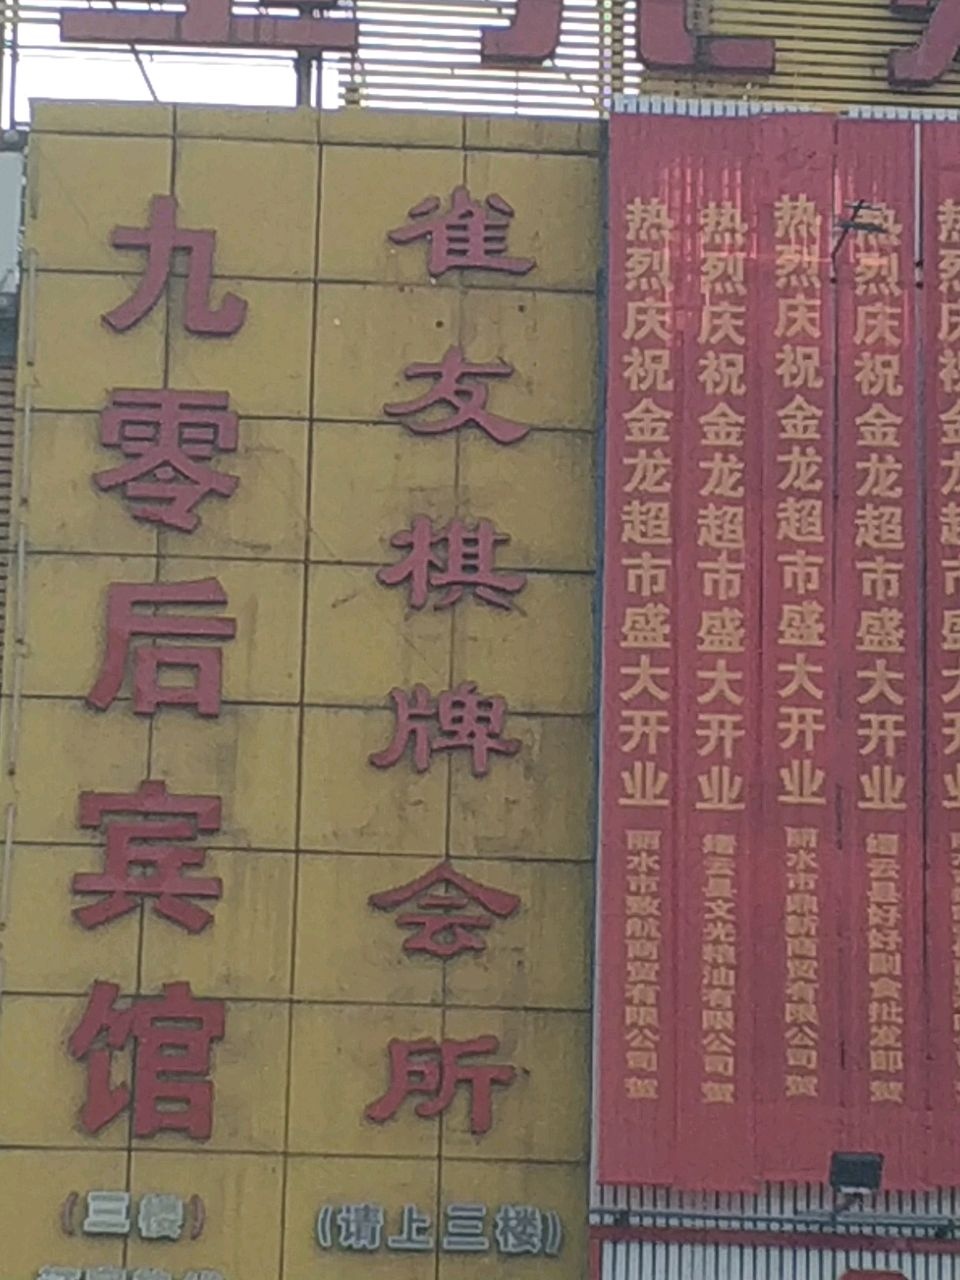 九零后宾馆
(三楼)
雀友棋牌会所
(请上三楼)
热烈庆祝金龙超市盛大开业
丽水市致航商贸有限公司 贺
热烈庆祝金龙超市盛大开业
缙云县文光粮油有限公司 贺
热烈庆祝金龙超市盛大开业
丽水市鼎新商贸有限公司 贺
热烈庆祝金龙超市盛大开业
缙云县好好副食批发部 贺